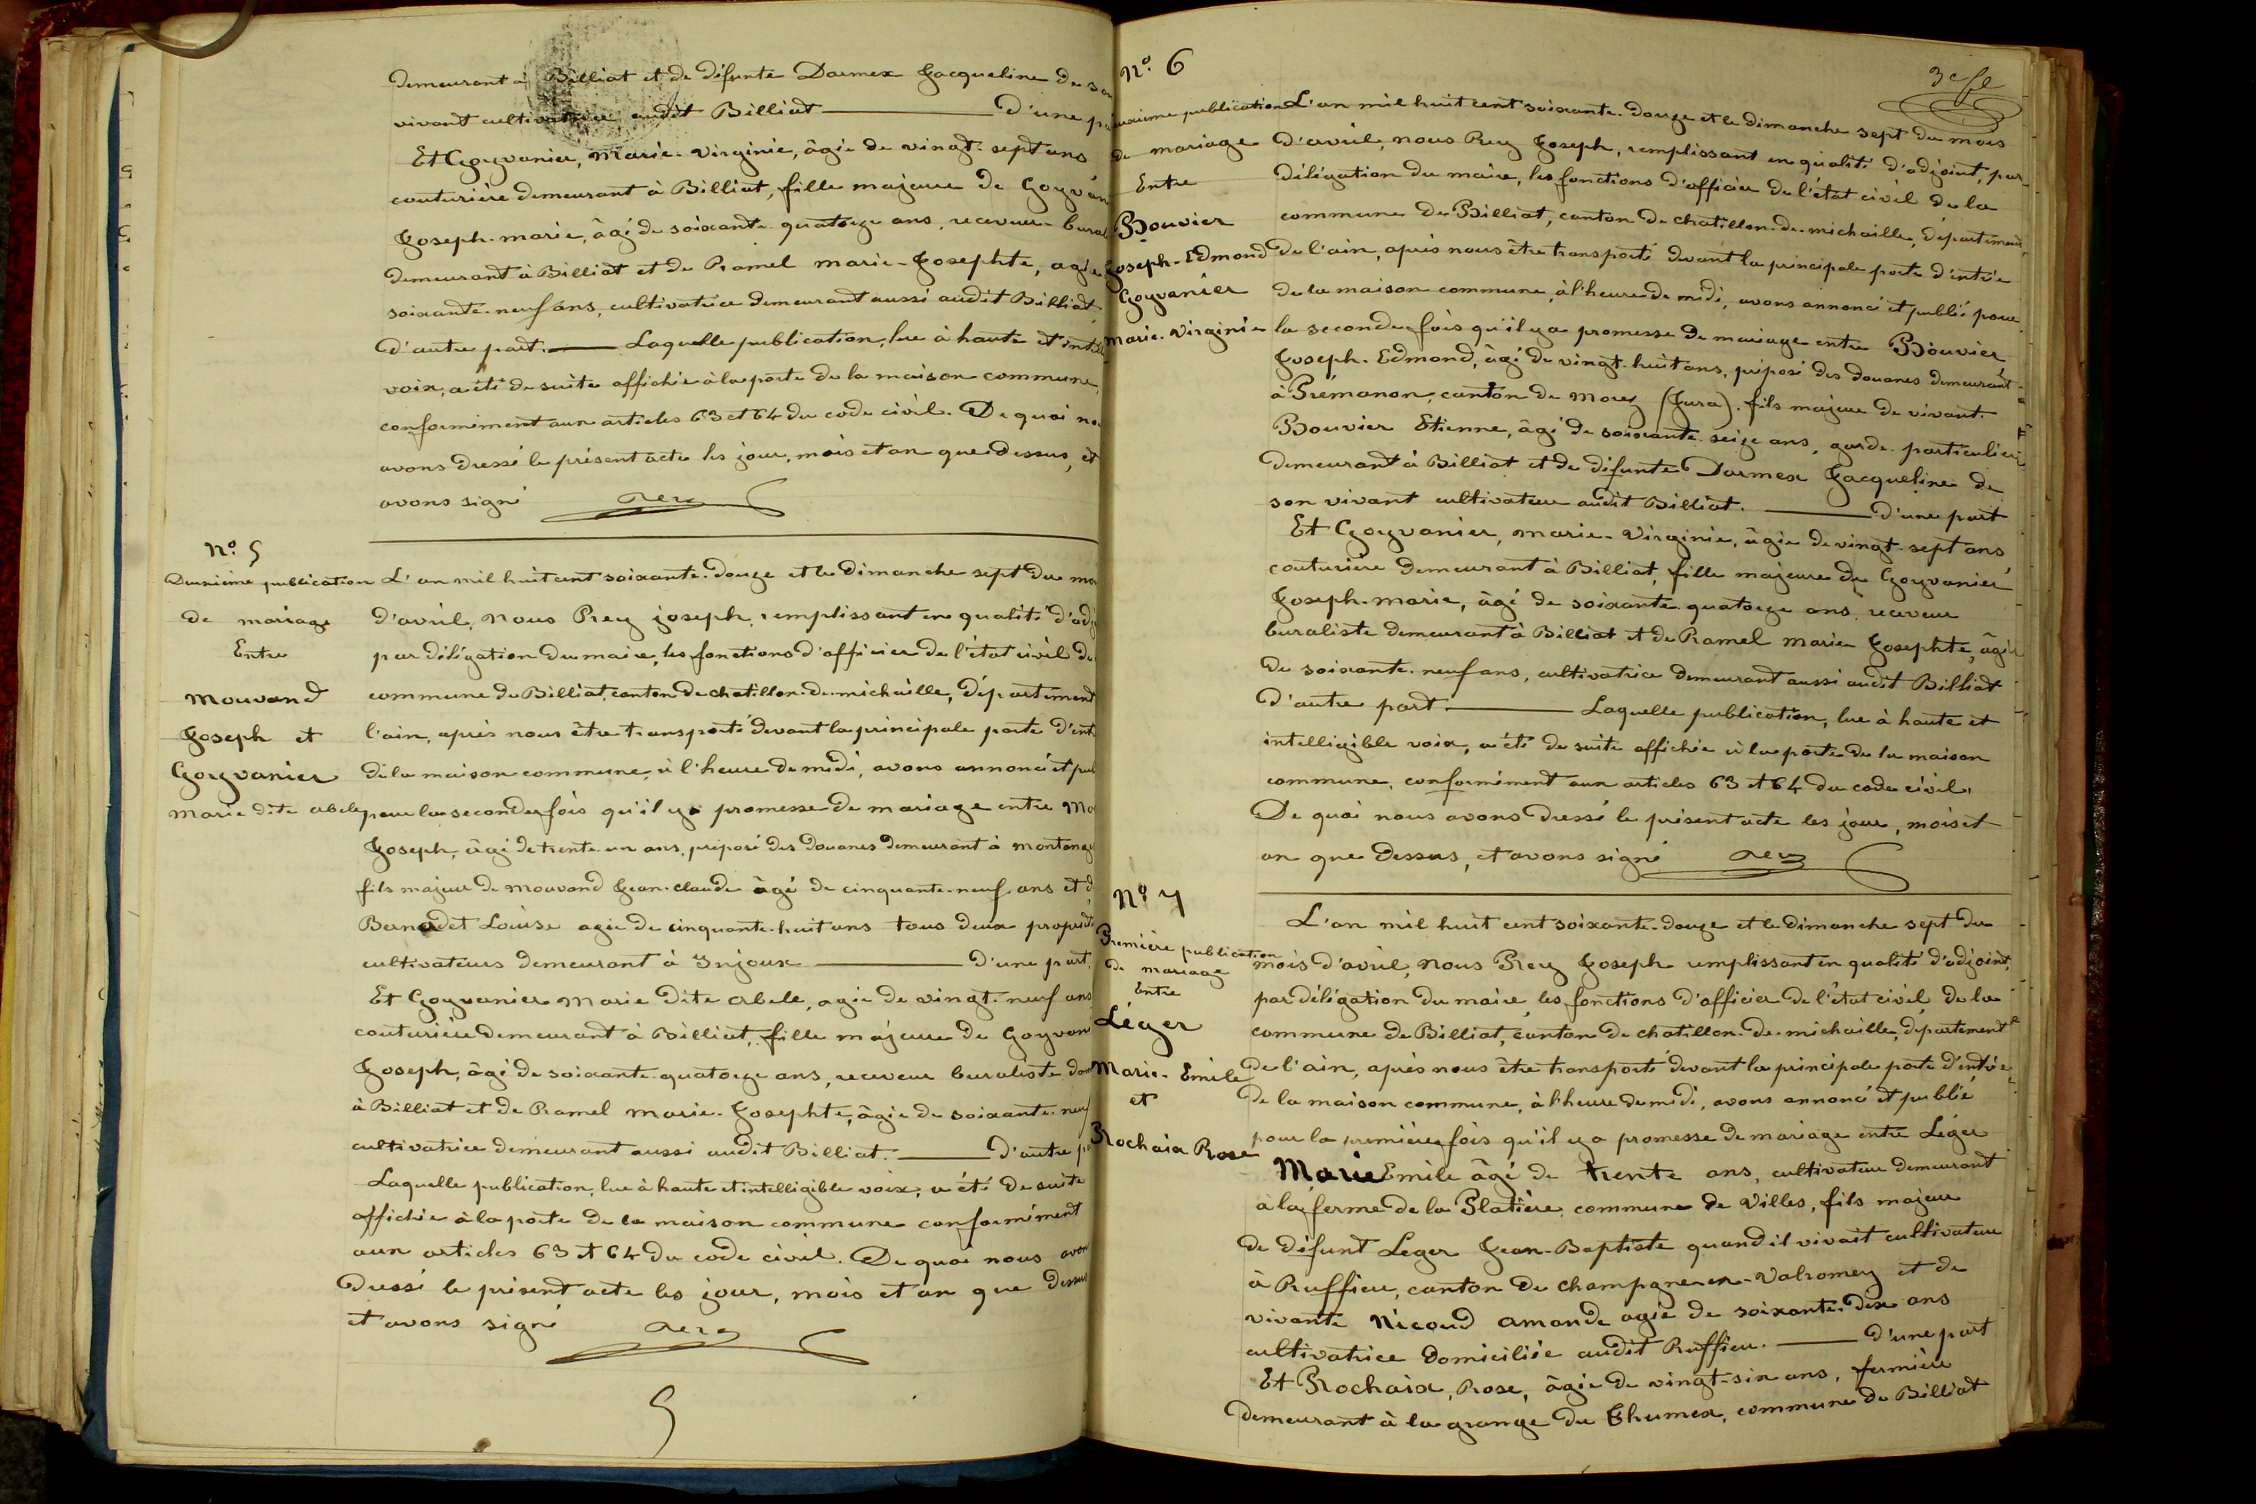 demeurant à Billiat et de défunte Darmex Jacqueline de son
vivant cultivatrice audit Billiat d'une pa
Et Goyvanier, Marie-Virginie, âgée de vingt-sept ans
couturière demeurant à Billiat, fille majeure de Goyvan
Joseph-marie, âgé de soixante-quatorze ans, receveur-bural
demeurant à Billiat et de Ramel marie-Josephte, agée
soixante-neuf ans, cultivatrice demeurant aussi audit Billiat,
d'autre part. Laquelle publication, lue à haute et intelli
voix, a été de suite affichée à la porte de la maison commune,
conformément aux articles 63 et 64 du code civil. De quoi no
avons dressé le présent acte les jour, mois et an que dessus, et
avons signé Rey
N° 5
Deuxième publication
de mariage
Entre
Mouvand
Joseph et
Goyvanier
Marie dite abele
L'an mil huit cent soixante-douze et le dimanche sept du mo
d'avril, nous Rey joseph, remplissant en qualité d'adj
par délégation du maire, les fonctions d'officier de l'état civil de
commune de Billiat, canton de chatillon-de-michaille, département
l'ain, après nous être transporté devant la principale porte d'ent
de la maison commune, à l'heure de midi, avons annoncé et pub
pour la seconde fois qu'il y a promesse de mariage entre Mo
Joseph, âgé de trente-un ans, préposé des douanes demeurant à montang
fils majeur de mouvand Jean-claude âgé de cinquante-neuf ans et d
Bernadet Louise agée de cinquante-huit ans tous deux propriét
cultivateurs demeurant à Injoux d'une part.
Et Goyvanier Marie dite abele, agée de vingt-neuf ans
couturière demeurant à Billiat, fille majeure de Goyvan
Joseph, âgé de soixante-quatorze ans, receveur buraliste dem
à Billiat et de Ramel marie-Josephte, âgée de soixante-neuf
cultivatrice demeurant aussi audit Billiat. d'autre pa
Laquelle publication, lue à haute et intelligible voix, a été de suite
affichée à la porte de la maison commune conformément
aux articles 63 et 64 du code civil. De quoi nous avon
dressé le présent acte les jour, mois et an que dessus
et avons signé Rey
N° 6
publication
de mariage
Entre
Bouvier
Joseph-Edmond
Goyvanier
marie-Virginie
L'an mil huit cent soixante-douze et le dimanche sept du mois
d'avril, nous Rey Joseph, remplissant en qualité d'adjoint, par
délégation du maire, les fonctions d'officier de l'état civil de la
commune de Billiat, canton de chatillon-de-michaille, département
de l'ain, après nous être transporté devant la principale porte d'entrée
de la maison commune, à l'heure de midi, avons annoncé et publié pour
la seconde fois qu'il y a promesse de mariage entre Bouvier
Joseph-Edmond, âgé de vingt-huit ans, préposé des douanes demeurant
à Prémanon, canton de morez (Jura). fils majeur de vivant
Bouvier Etienne, âgé de soixante-seize ans, garde-particulier
demeurant à Billiat et de défunte Darmex Jacqueline de
son vivant cultivateur audit Billiat. d'une part
Et Goyvanier, marie-Virginie, âgée de vingt-sept ans
couturière demeurant à Billiat, fille majeure de Goyvanier
Joseph-marie, âgé de soixante-quatorze ans, receveur
buraliste demeurant à Billiat et de Ramel marie Josephte, âgée
de soixante-neuf ans, cultivatrice demeurant aussi audit Billiat
d'autre part. Laquelle publication, lue à haute et
intelligible voix, a été de suite affichée à la porte de la maison
commune, conformément aux articles 63 et 64 du code civil.
De quoi nous avons dressé le présent acte les jour, mois et
an que dessus, et avons signé Rey
N° 7
Première publication
de mariage
Entre
Léger
Marie-Emile
et
Rochaix Rose
L'an mil huit cent soixante-douze et le dimanche sept du
mois d'avril, nous Rey Joseph remplissant en qualité d'adjoint,
par délégation du maire, les fonctions d'officier de l'état civil de la
commune de Billiat, canton de chatillon-de-michaille, département
de l'ain, après nous être transporté devant la principale porte d'entrée
de la maison commune, à l'heure de midi, avons annoncé et publié
pour la première fois qu'il y a promesse de mariage entre Léger
Marie Emile âgé de trente ans, cultivateur demeurant
à la ferme de la Platière, commune de Villes, fils majeur
de défunt Leger Jean-Baptiste quand il vivait cultivateur
à Ruffieu, canton de Champagne-en-Valromey et de
vivante Nicoud amande agée de soixante-dix ans
cultivatrice domiciliée audit Ruffieu. d'une part
Et Rochaix, Rose, âgée de vingt-six ans, fermière
demeurant à la grange du Chumex, commune de Billiat